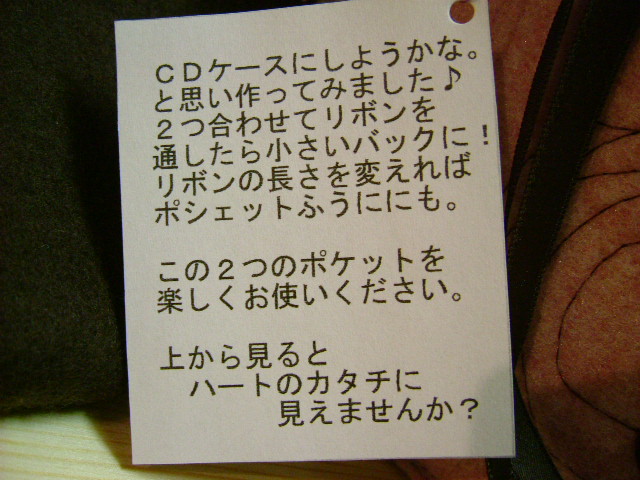 CDケースにしようかな。
と思い作ってみました♪
2つ合わせてリボンを
通したら小さいバックに!
リボンの長さを変えれば
ポシェットふうににも。
この2つのポケットを
楽しくお使いください。
上から見ると
ハートのカタチに
見えませんか?